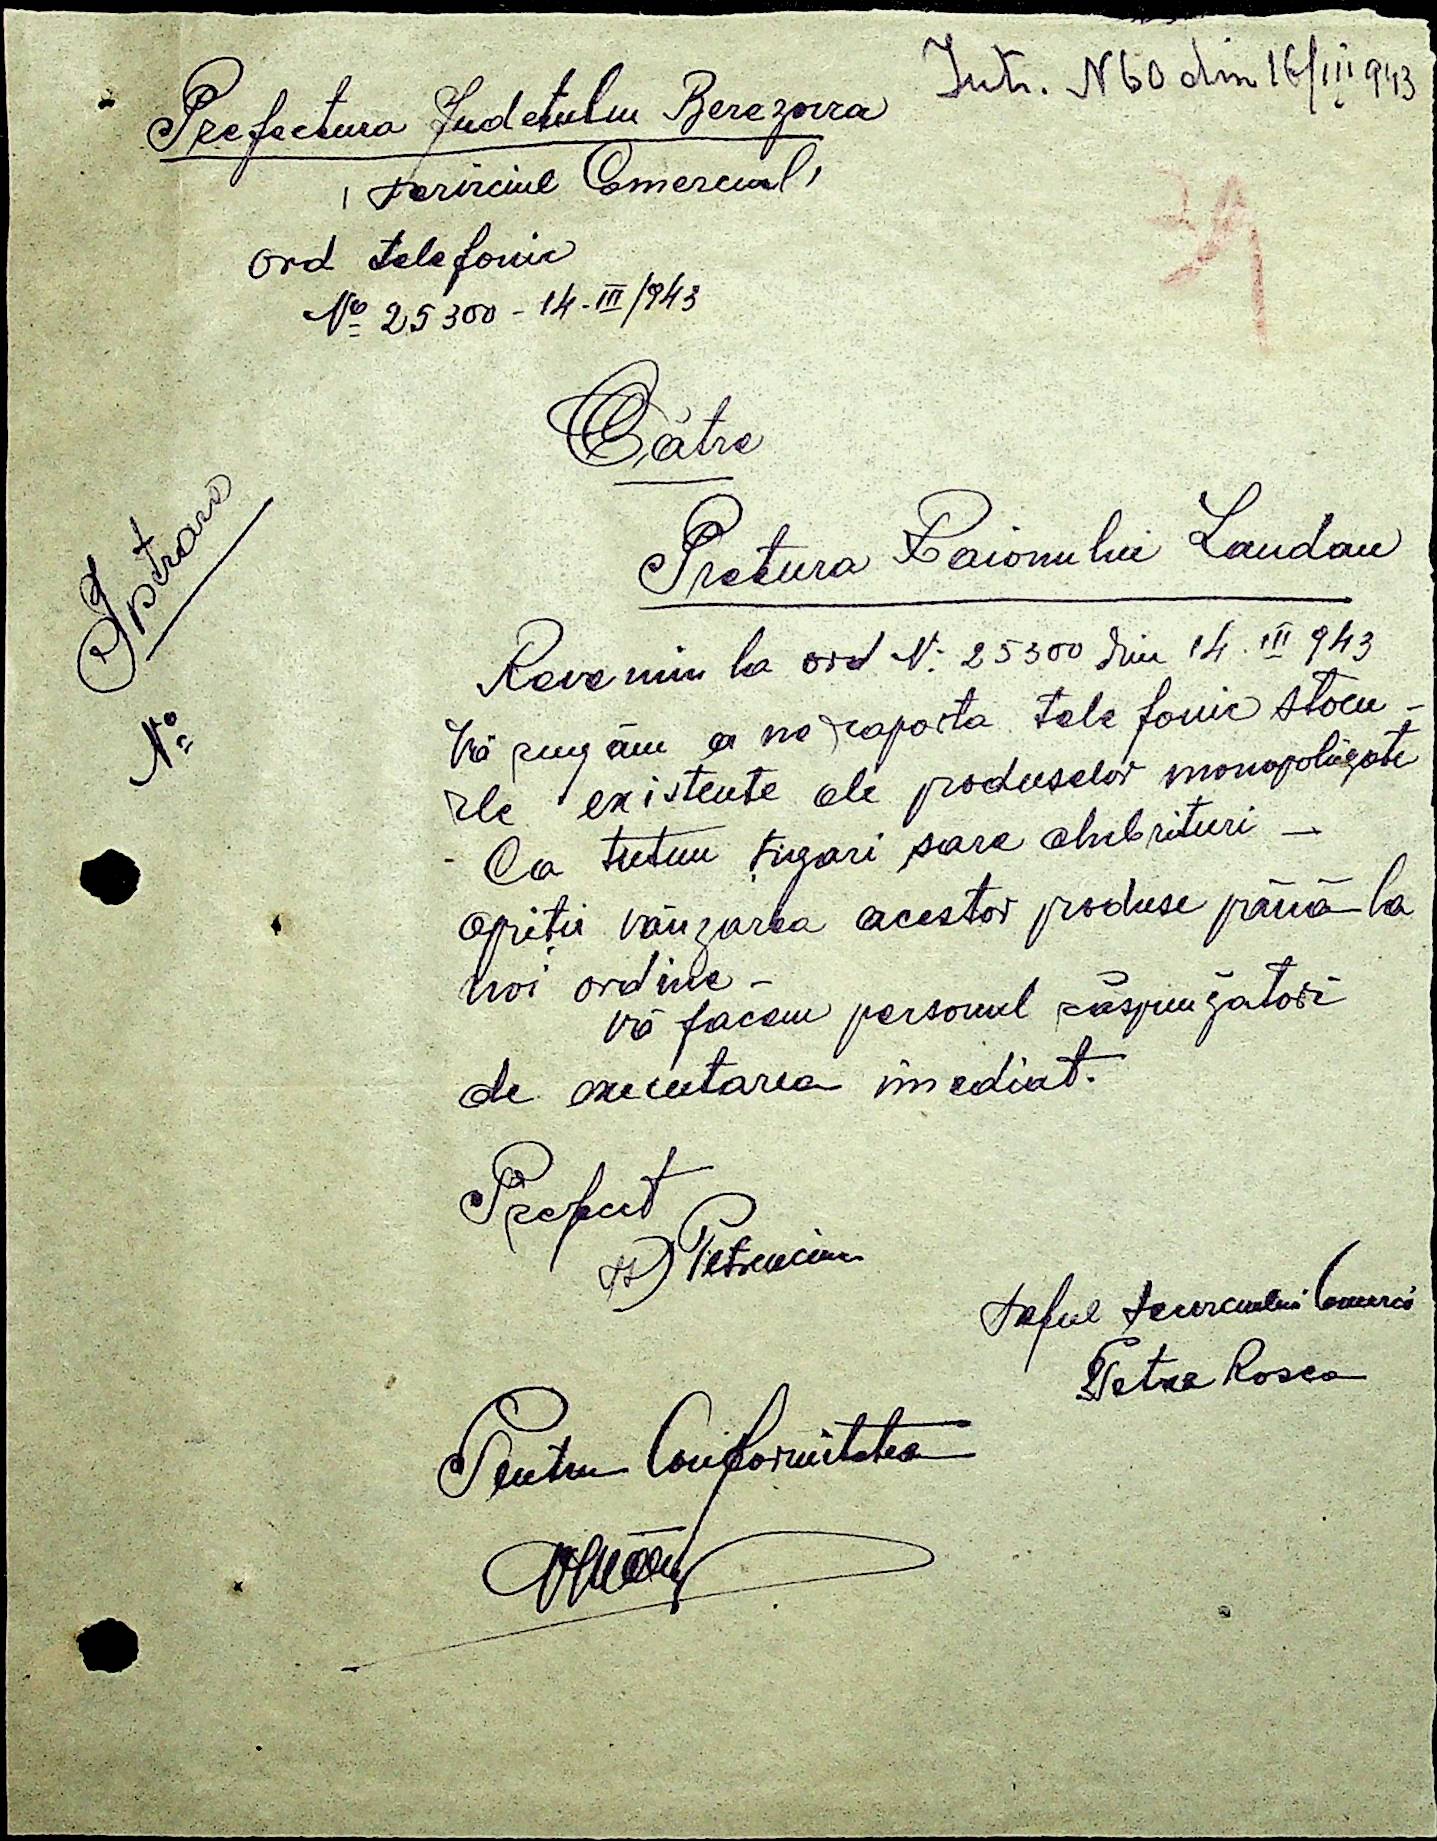 Intr. N 60 din 16/III 943
Prefectura Judetului Berezovca
Serviciul Comercial
ord telefonic
No 25300 - 14 - III/943
Către
Pretura Raionului Landau
No
Revenim la ord N: 25300 din 14. III 943
Vă rugăm a ne raporta telefonic stocu-
rle existente ale produselor monopolizate
Ca tutun țigari sare chibrituri —
opriți vânzarea acestor produse pănă la
noi ordine —
Vă facem personal răspunzatori
de executarea imediat.
Prefect
ss) Petrenciu
Seful Serviciului Comerci
Petre Rosca
Pentru Conformitatea